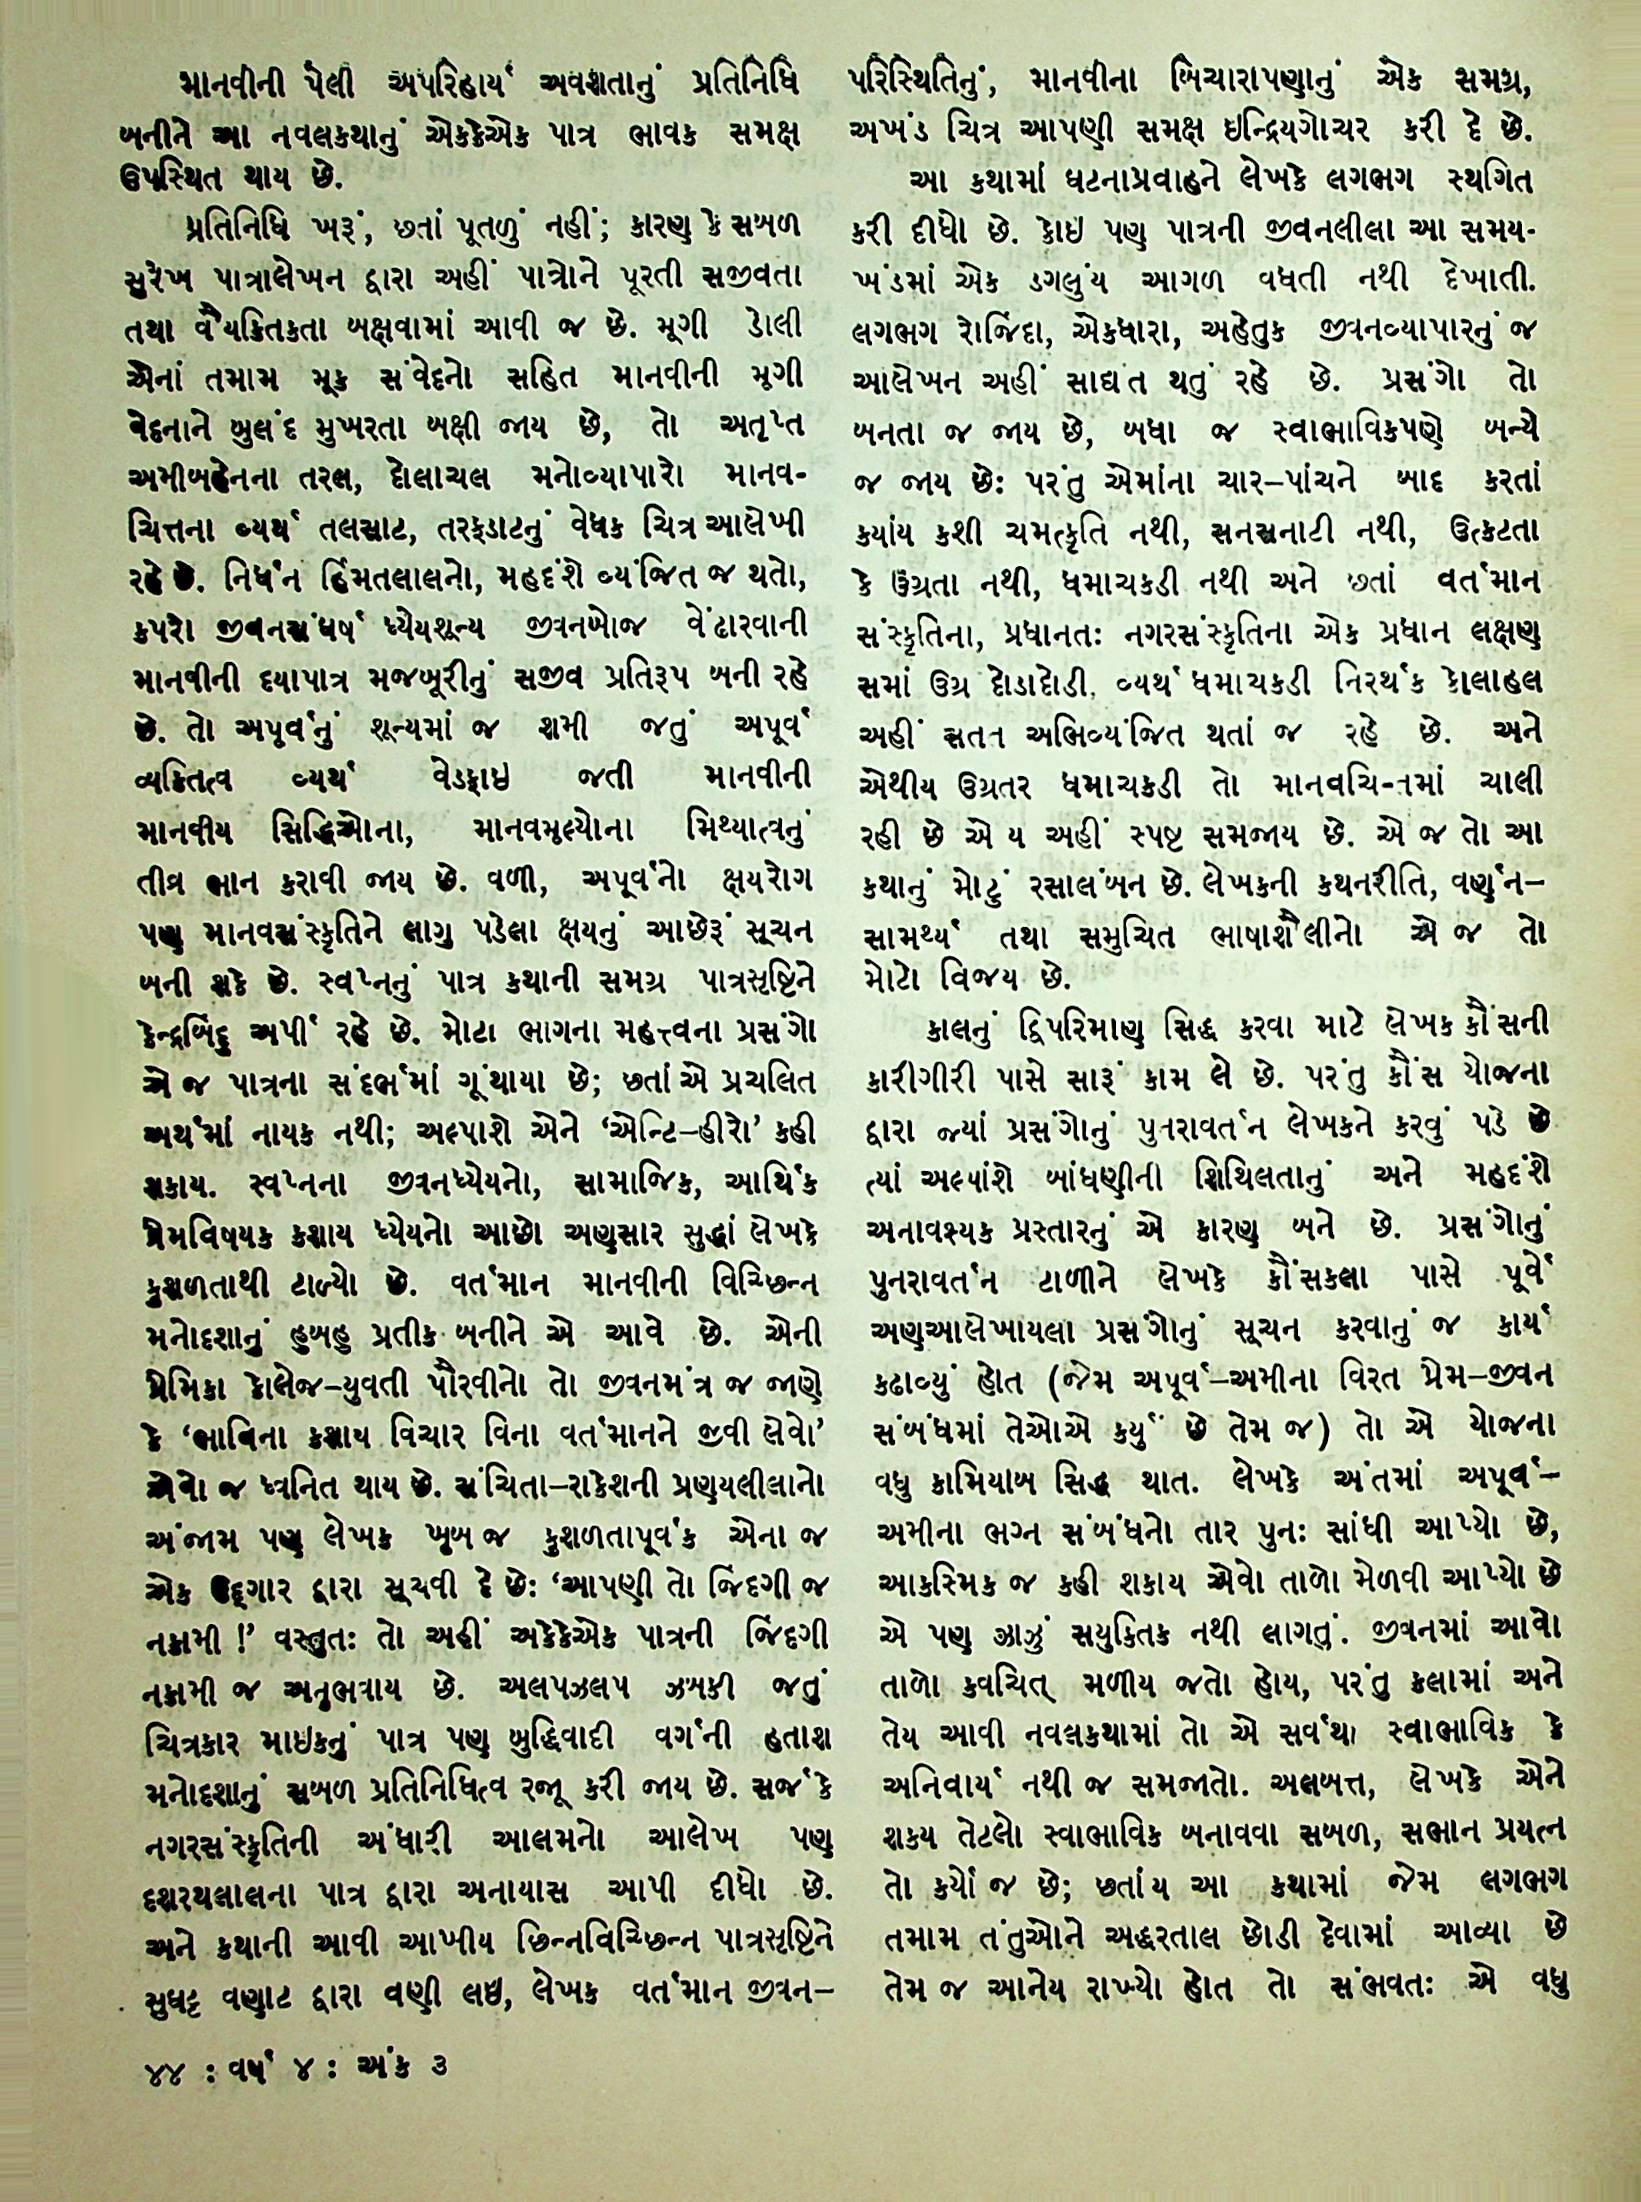 માનવીની પેલી અપરિહાર્ય અવશતાનું પ્રતિનિધિ
બનીને આ નવલકથાનું એકેકેએક પાત્ર ભાવક સમક્ષ
ઉપસ્થિત થાય છે.
પ્રતિનિધિ ખરૂં, છતાં પૂતળું નહીં; કારણ કે સબળ
સુરેખ પાત્રાલેખન દ્વારા અહીં પાત્રોને પૂરતી સજીવતા
તથા વૈયક્તિકતા બક્ષવામાં આવી જ છે. મૂગી ડોલી
એનાં તમામ મૂક સંવેદનો સહિત માનવીની મૂગી
વેદનાને બુલંદ મુખરતા બક્ષી જાય છે, તો અતૃપ્ત
અમીબહેનના તરલ, દોલાચલ મનોવ્યાપારો માનવ-
ચિત્તના વ્યર્થ તલસાટ, તરફડાટનું વેધક ચિત્ર આલેખી
રહે છે. નિર્ધન હિંમતલાલનો, મહદંશે વ્યંજિત જ થતો,
કપરો જીવનસંઘર્ષ ધ્યેયશૂન્ય જીવનબોજ વેંઢારવાની
માનવીની દયાપાત્ર મજબૂરીનું સજીવ પ્રતિરૂપ બની રહે
છે. તો અપૂર્વનું શૂન્યમાં જ શમી જતું અપૂર્વ
વ્યક્તિત્વ વ્યર્થ વેડફાઇ જતી માનવીની
માનવીય સિદ્ધિઓના, માનવમૂલ્યોના મિથ્યાત્વનું
તીવ્ર ભાન કરાવી જાય છે. વળી, અપૂર્વનો ક્ષયરોગ
પણ માનવસંસ્કૃતિને લાગુ પડેલા ક્ષયનું આછેરૂં સૂચન
બની શકે છે. સ્વપ્નનું પાત્ર કથાની સમગ્ર પાત્રસૃષ્ટિને
કેન્દ્રબિંદુ અર્પી રહે છે. મોટા ભાગના મહત્ત્વના પ્રસંગો
એ જ પાત્રના સંદર્ભમાં ગૂંથાયા છે; છતાં એ પ્રચલિત
અર્થમાં નાયક નથી; અલ્પાશે એને ‘એન્ટિ–હીરો’ કહી
શકાય. સ્વપ્નના જીવનધ્યેયનો, સામાજિક, આર્થિક
પ્રેમવિષયક કશાય ધ્યેયનો આછો અણુસાર સુદ્ધાં લેખકે
કુશળતાથી ટાળ્યો છે. વર્તમાન માનવીની વિચ્છિન્ન
મનોદશાનું હુબહુ પ્રતીક બનીને એ આવે છે. એની
પ્રેમિકા કોલેજ–યુવતી પૌરવીનો તો જીવનમંત્ર જ જાણે
કે ‘ભાવિના કશાય વિચાર વિના વર્તમાનને જીવી લેવો’
એવો જ ધ્વનિત થાય છે. સંચિતા–રાકેશની પ્રણયલીલાનો
અંજામ પણ લેખક ખૂબ જ કુશળતાપૂર્વક એના જ
એક ઉદ્ગાર દ્વારા સૂચવી દે છે: ‘આપણી તો જિંદગી જ
નકામી !’ વસ્તુત: તો અહીં અકેકેએક પાત્રની જિંદગી
નકામી જ અનુભવાય છે. અલપઝલપ ઝબકી જતું
ચિત્રકાર માઇકનું પાત્ર પણ બુદ્ધિવાદી વર્ગની હતાશ
મનોદશાનું સબળ પ્રતિનિધિત્વ રજૂ કરી જાય છે. સર્જકે
નગરસંસ્કૃતિની અંધારી આલમનો આલેખ પણ
દશરથલાલના પાત્ર દ્વારા અનાયાસ આપી દીધો છે.
અને કથાની આવી આખીય છિન્નવિચ્છિન્ન પાત્રસૃષ્ટિને
સુઘટ્ટ વણાટ દ્વારા વણી લઇ, લેખક વર્તમાન જીવન–
પરિસ્થિતિનું, માનવીના બિચારાપણાનું એક સમગ્ર,
અખંડ ચિત્ર આપણી સમક્ષ ઇન્દ્રિયગોચર કરી દે છે.
આ કથામાં ઘટનાપ્રવાહને લેખકે લગભગ સ્થગિત
કરી દીધો છે. કોઇ પણ પાત્રની જીવનલીલા આ સમય-
ખંડમાં એક ડગલુંય આગળ વધતી નથી દેખાતી.
લગભગ રોજિંદા, એકધારા, અહેતુક જીવનવ્યાપારનું જ
આલેખન અહીં સાદ્યંત થતું રહે છે. પ્રસંગો તો
બનતા જ જાય છે, બધા જ સ્વાભાવિકપણે બન્યે
જ જાય છે: પરંતુ એમાંના ચાર–પાંચને બાદ કરતાં
કયાંય કશી ચમત્કૃતિ નથી, સનસનાટી નથી, ઉત્કટતા
કે ઉગ્રતા નથી, ધમાચકડી નથી અને છતાં વર્તમાન
સંસ્કૃતિના, પ્રધાનત: નગરસંસ્કૃતિના એક પ્રધાન લક્ષણ
સમાં ઉગ્ર દોડાદોડી, વ્યર્થ ધમાચકડી નિરર્થક કોલાહલ
અહીં સતત અભિવ્યંજિત થતાં જ રહે છે. અને
એથીય ઉગ્રતર ધમાચકડી તો માનવચિત્તમાં ચાલી
રહી છે એ ય અહીં સ્પષ્ટ સમજાય છે. એ જ તો આ
કથાનું મોટું રસાલંબન છે. લેખકની કથનરીતિ, વર્ણન–
સામર્થ્ય તથા સમુચિત ભાષાશૈલીનો એ જ તો
મોટો વિજય છે.
કાલનું દ્વિપરિમાણ સિદ્ધ કરવા માટે લેખક કૌંસની
કારીગીરી પાસે સારૂં કામ લે છે. પરંતુ કૌંસ યોજના
દ્વારા જ્યાં પ્રસંગોનું પુનરાવર્તન લેખકને કરવું પડે છે
ત્યાં અલ્પાંશે બાંધણીની શિથિલતાનું અને મહદંશે
અનાવશ્યક પ્રસ્તારનું એ કારણ બને છે. પ્રસંગોનું
પુનરાવર્તન ટાળીને લેખકે કૌંસકલા પાસે પૂર્વે
અણઆલેખાયલા પ્રસંગોનું સૂચન કરવાનું જ કાર્ય
કઢાવ્યું હોત (જેમ અપૂર્વ–અમીના વિરત પ્રેમ–જીવન
સંબંધમાં તેઓએ કર્યું છે તેમ જ) તો એ યોજના
વધુ કામિયાબ સિદ્ધ થાત. લેખકે અંતમાં અપૂર્વ–
અમીના ભગ્ન સંબંધનો તાર પુન: સાંધી આપ્યો છે,
આકસ્મિક જ કહી શકાય એવો તાળો મેળવી આપ્યો છે
એ પણ ઝાઝું સયુક્તિક નથી લાગતું. જીવનમાં આવો
તાળો કવચિત્ મળીય જતો હોય, પરંતુ કલામાં અને
તેય આવી નવલકથામાં તો એ સર્વથા સ્વાભાવિક કે
અનિવાર્ય નથી જ સમજાતો. અલબત્ત, લેખકે એને
શકય તેટલો સ્વાભાવિક બનાવવા સબળ, સભાન પ્રયત્ન
તો કર્યો જ છે; છતાંય આ કથામાં જેમ લગભગ
તમામ તંતુઓને અદ્ધરતાલ છોડી દેવામાં આવ્યા છે
તેમ જ આનેય રાખ્યો હોત તો સંભવત: એ વધુ
૪૪ : વર્ષ ૪ : અંક ૩